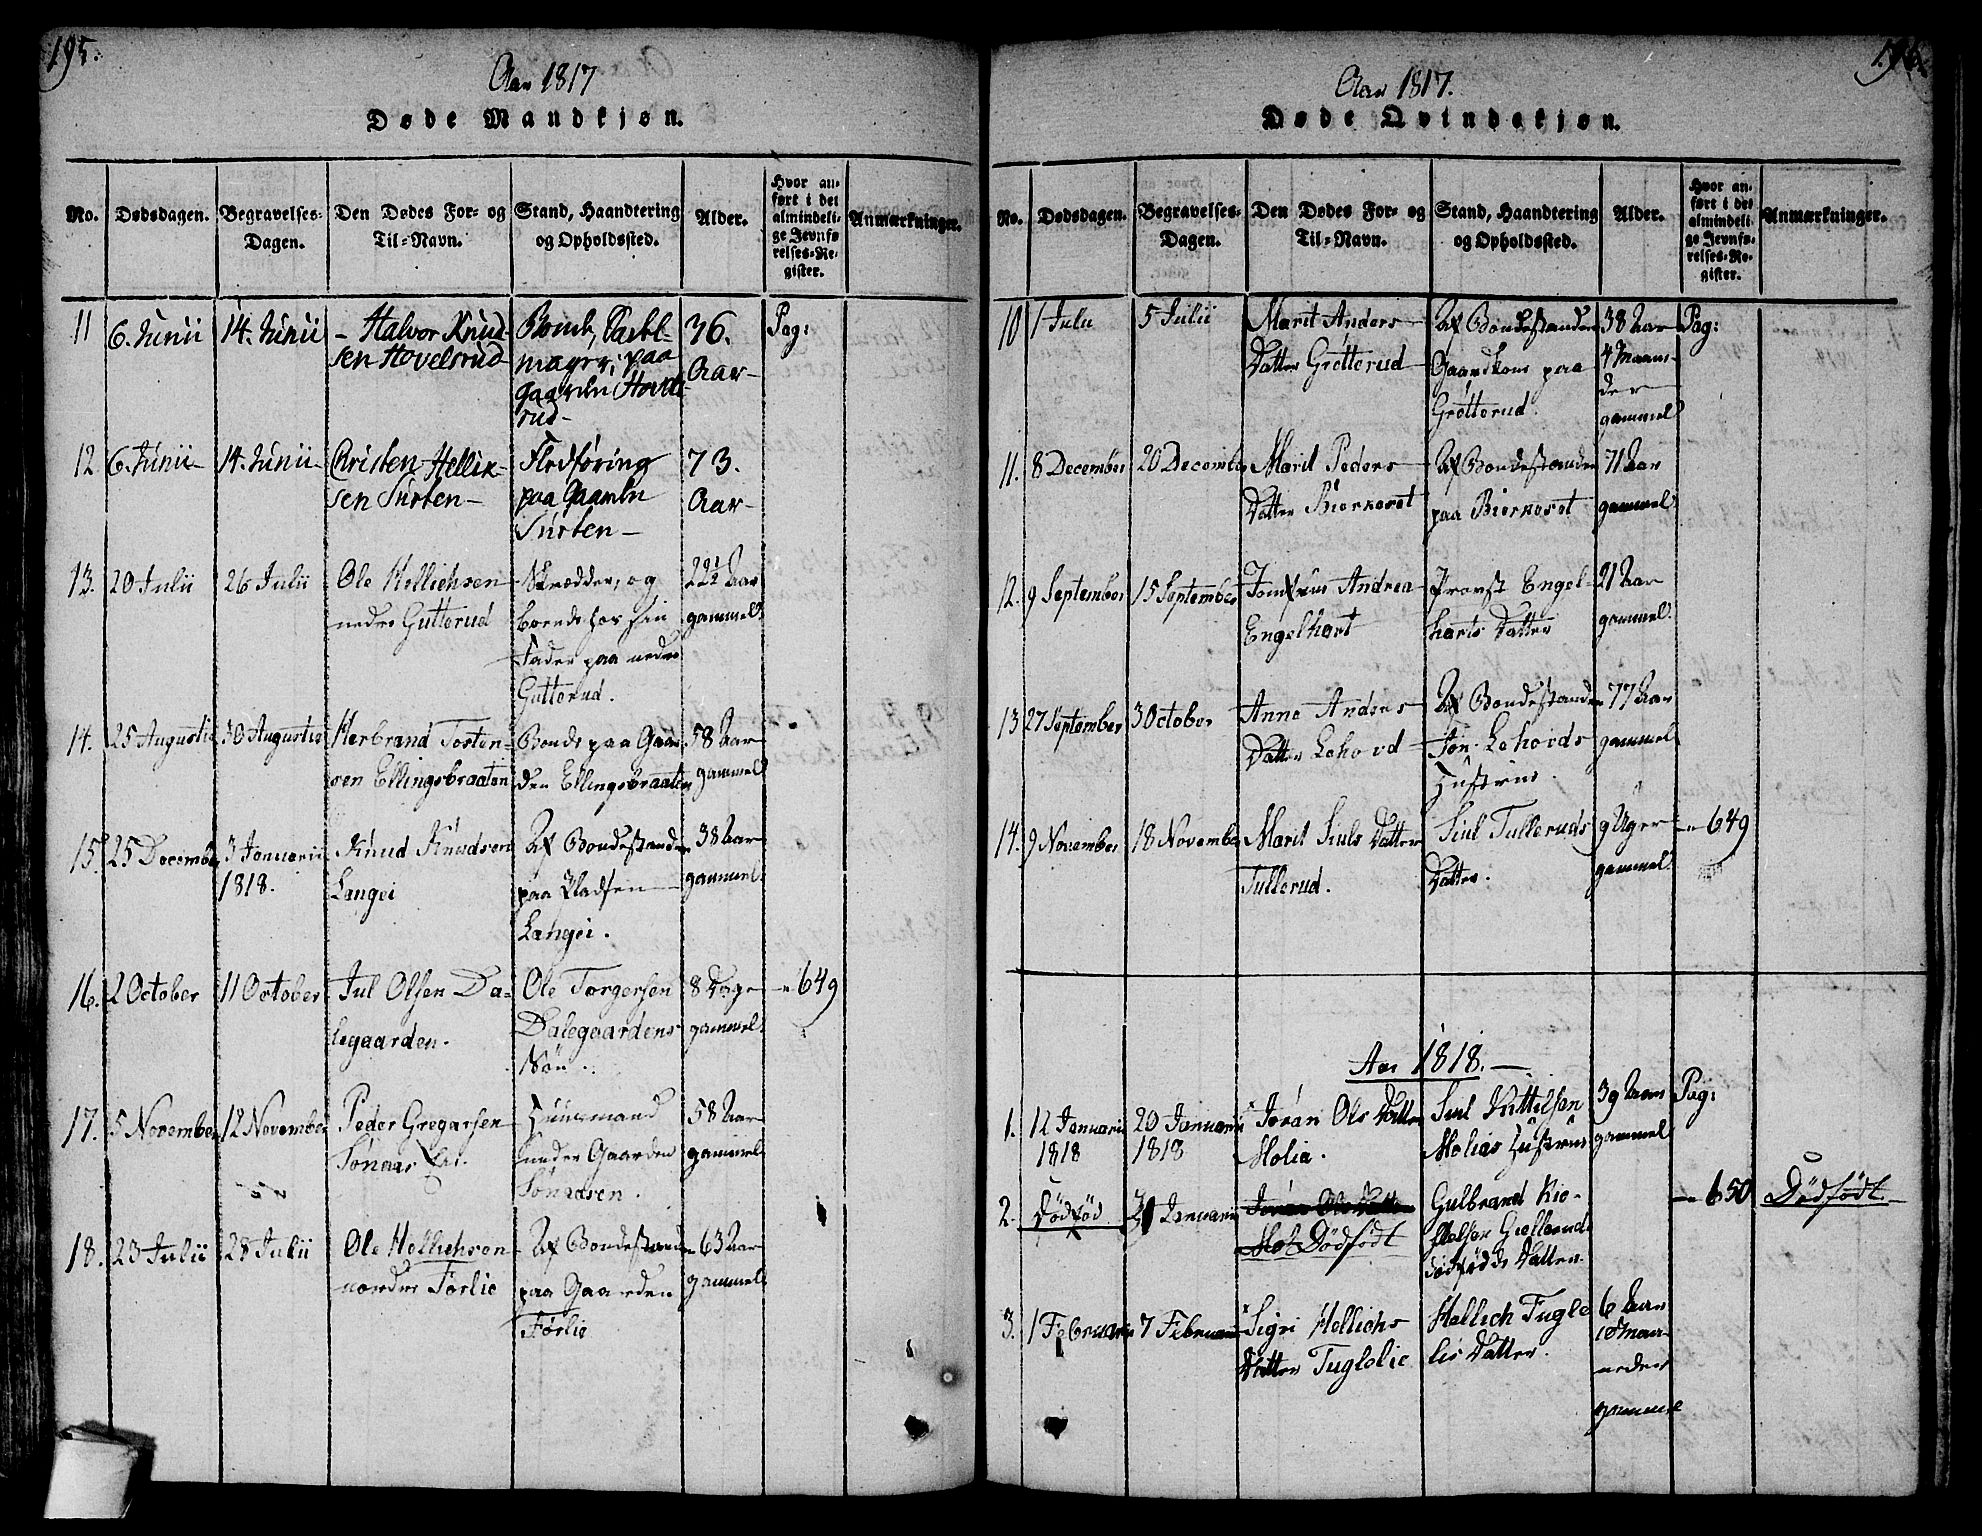 195.
Aar 1817
Døde Mandkjøn.
No.
Dødsdagen.
Begravelses-
Dagen.
Den Dødes For- og
Til-Navn.
Stand, Haandtering
og Opholdssted.
Alder.
Hvor an-
ført i det
almindeli-
ge Jevnfø
relses-Re-
gister.
Anmærkninger.
11
6. Junii
14. Junii
Halvor Knud-
sen Hovelsrud
paa
36.
Aar
rud
Pag:
12
6. Junii
14. Junii
Christen Hellik-
sen Surten
Flodføring
paa Gaarden
Surten
73.
Aar
13.
20 Julii
26 Julii
Ole Hellichsen
nedre Gutterud
Skrædder, og
boende hos sin
Fader paa nedre
Gutterud.
22½ Aar
gammel.
14.
25 Augustii
30 Augustii
Herbrand Tosten-
sen Ellingsbraaten
Bonde paa Gaar
den Ellingsbraaten
58 Aar
gammel
15.
25 December
3 Januarii
1818.
Knud Knudsen
Langei
Af Bondestanden
paa Pladsen
Langei.
38 Aar
gammel.
16.
2 October
11 October
Jul Olsen Da-
legaarden.
Ole Torgersen
Dalegaardens
Søn.
8 Dage
gammel.
649
17.
5 November
12 November
Peder Gregersen
Huusmand
under Gaarden
Sønaasen.
58 Aar
gammel
18.
23 Julii
28 Julii
Ole Hellichsen
nordre Førlie
Af Bondestanden
paa Gaarden
Førlie
63 Aar
gammel
196.
Aar 1817.
Døde Qvindekjøn.
No.
Dødsdagen.
Begravelses-
Dagen.
Den Dødes For- og
Til-Navn.
Stand, Haandtering
og Opholdssted.
Alder.
Hvor an-
ført i det
almindeli-
ge Jevnfø-
relses-Re-
gister.
Anmærkninger.
10
1 Julii
5 Julii
Marit Anders
Datter Grøtterud
Af Bondestanden
Gaardkone paa
Grøtterud.
38 Aar
4 Maane-
der
gammel
Pag:
11.
8 December
20 December
Marit Peders
Datter Bierkeset
Af Bondestanden
paa Bierkeset
71 Aar
gammel
12.
9 September
15 September
Jomfrue Andrea
Engelhart
Provst Engel-
harts Datter
21 Aar
gammel.
13
27 September
3 October
Anne Anders
Datter Lehovd
Af Bondestanden
Jon Lehovds
Hustrue.
77 Aar
gammel
14.
9 November
18 November
Marit Siuls Datter
Tullerud.
Siul Tulleruds
Datter.
9 Uger
gammel
649
Aar 1818.
1.
12 Januarii
1818
20 Januarii
1818
Jøran Ols Datter
Molia.
Siul Kittilsen
Molias Hustrue
39 Aar
gammel
Pag:
2.
Dødfød
Januarii
Jøran Ols Datter
Dødfødt
Gulbrand Kio-
dødfødde Datter.
650
Dødfødt.
3.
1 Februarii
7 Februarii
Sigri Hellichs
Datter Fuglelie
Hellich Fugle
lis Datter.
6 Aar
10 Maa-
neder
gammel